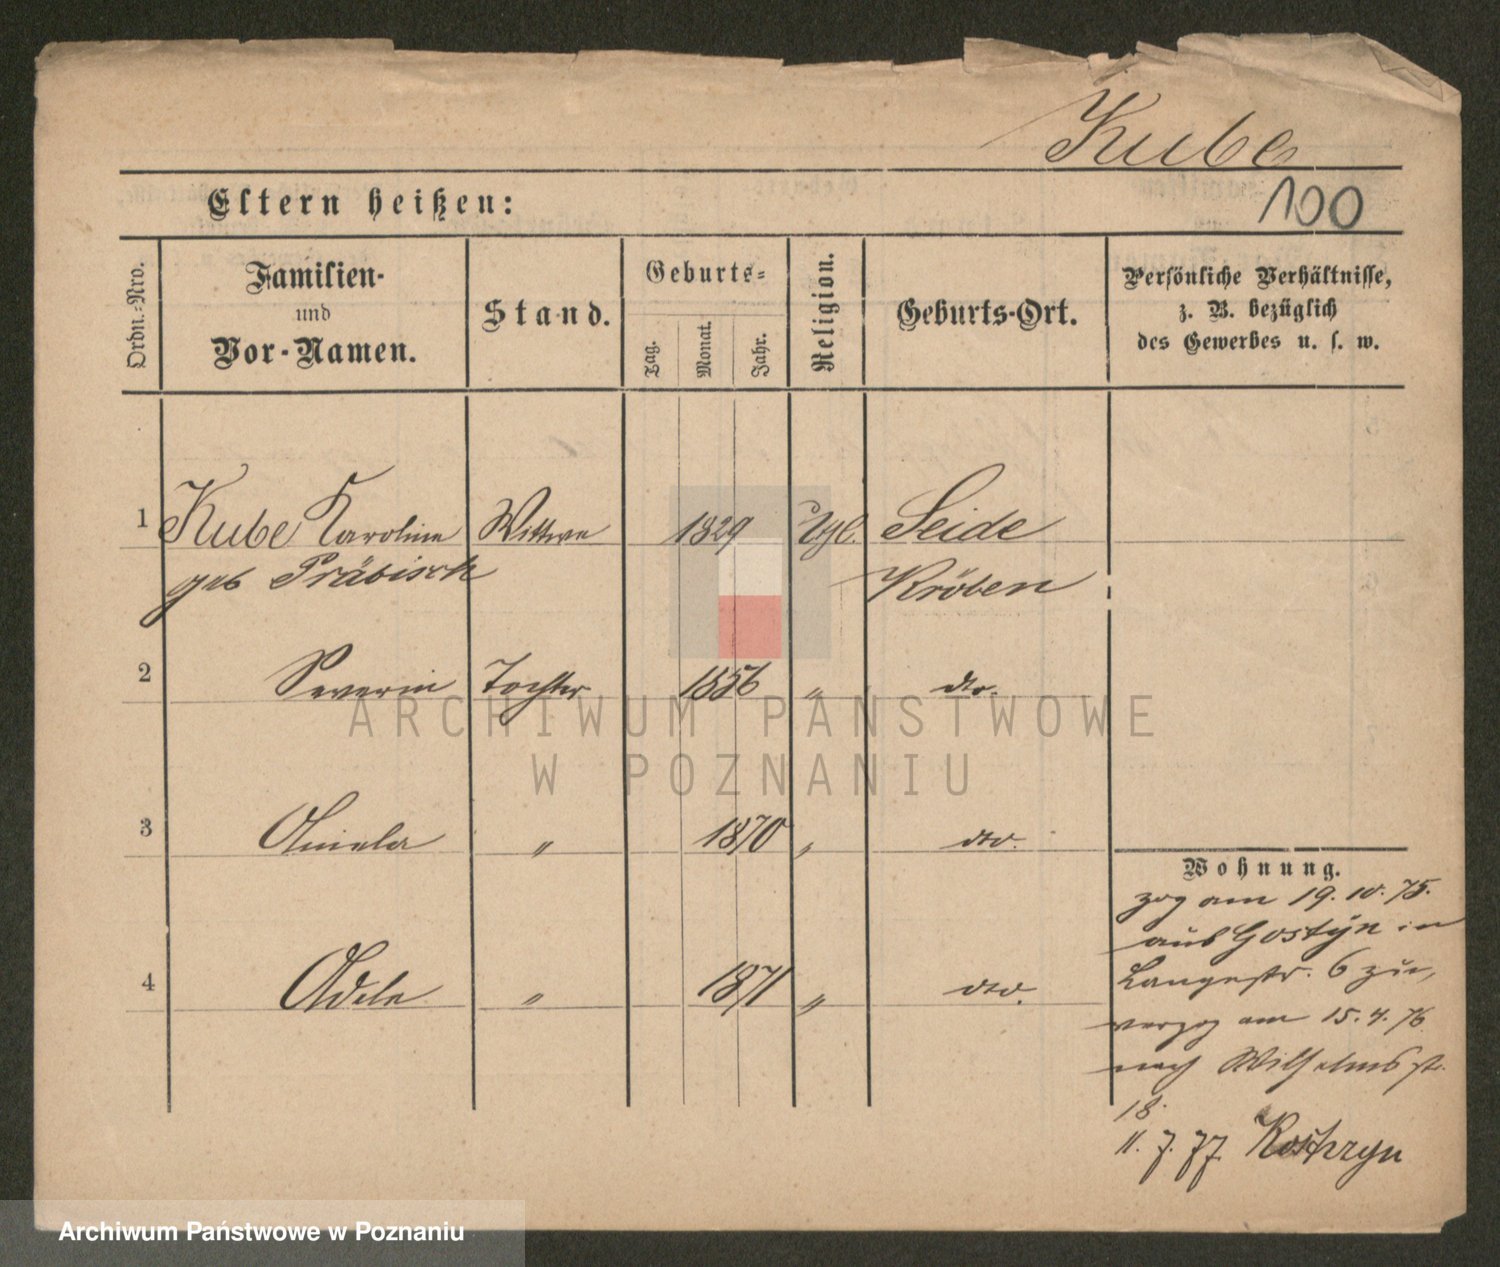 Kube
100
Eltern heißen:
Ordn.-Nro.
Familien-
und
Vor-Namen.
Stand.
Geburts-
Tag.
Monat.
Jahr.
Religion.
Geburts-Ort.
Persönliche Verhältnisse,
z. B. bezüglich
des Gewerbes u. s. w.
1 Kube Karoline Wittwe 1829 Seide
geb Präbisch Kröben
2 Severin Tochter 1856 " dto.
3 " 1870 " dto.
4 Adela " 1871 " dto.
Wohnung.
zog am 19. 10. 75.
aus Gostyn in
Langestr. 6 zu,
verzog am 15. 4. 76
nach Wilhelmsstr.
18.
11. 7. 77. Kostrzyn
ARCHIWUM PAŃSTWOWE
W POZNANIU
Archiwum Państwowe w Poznaniu